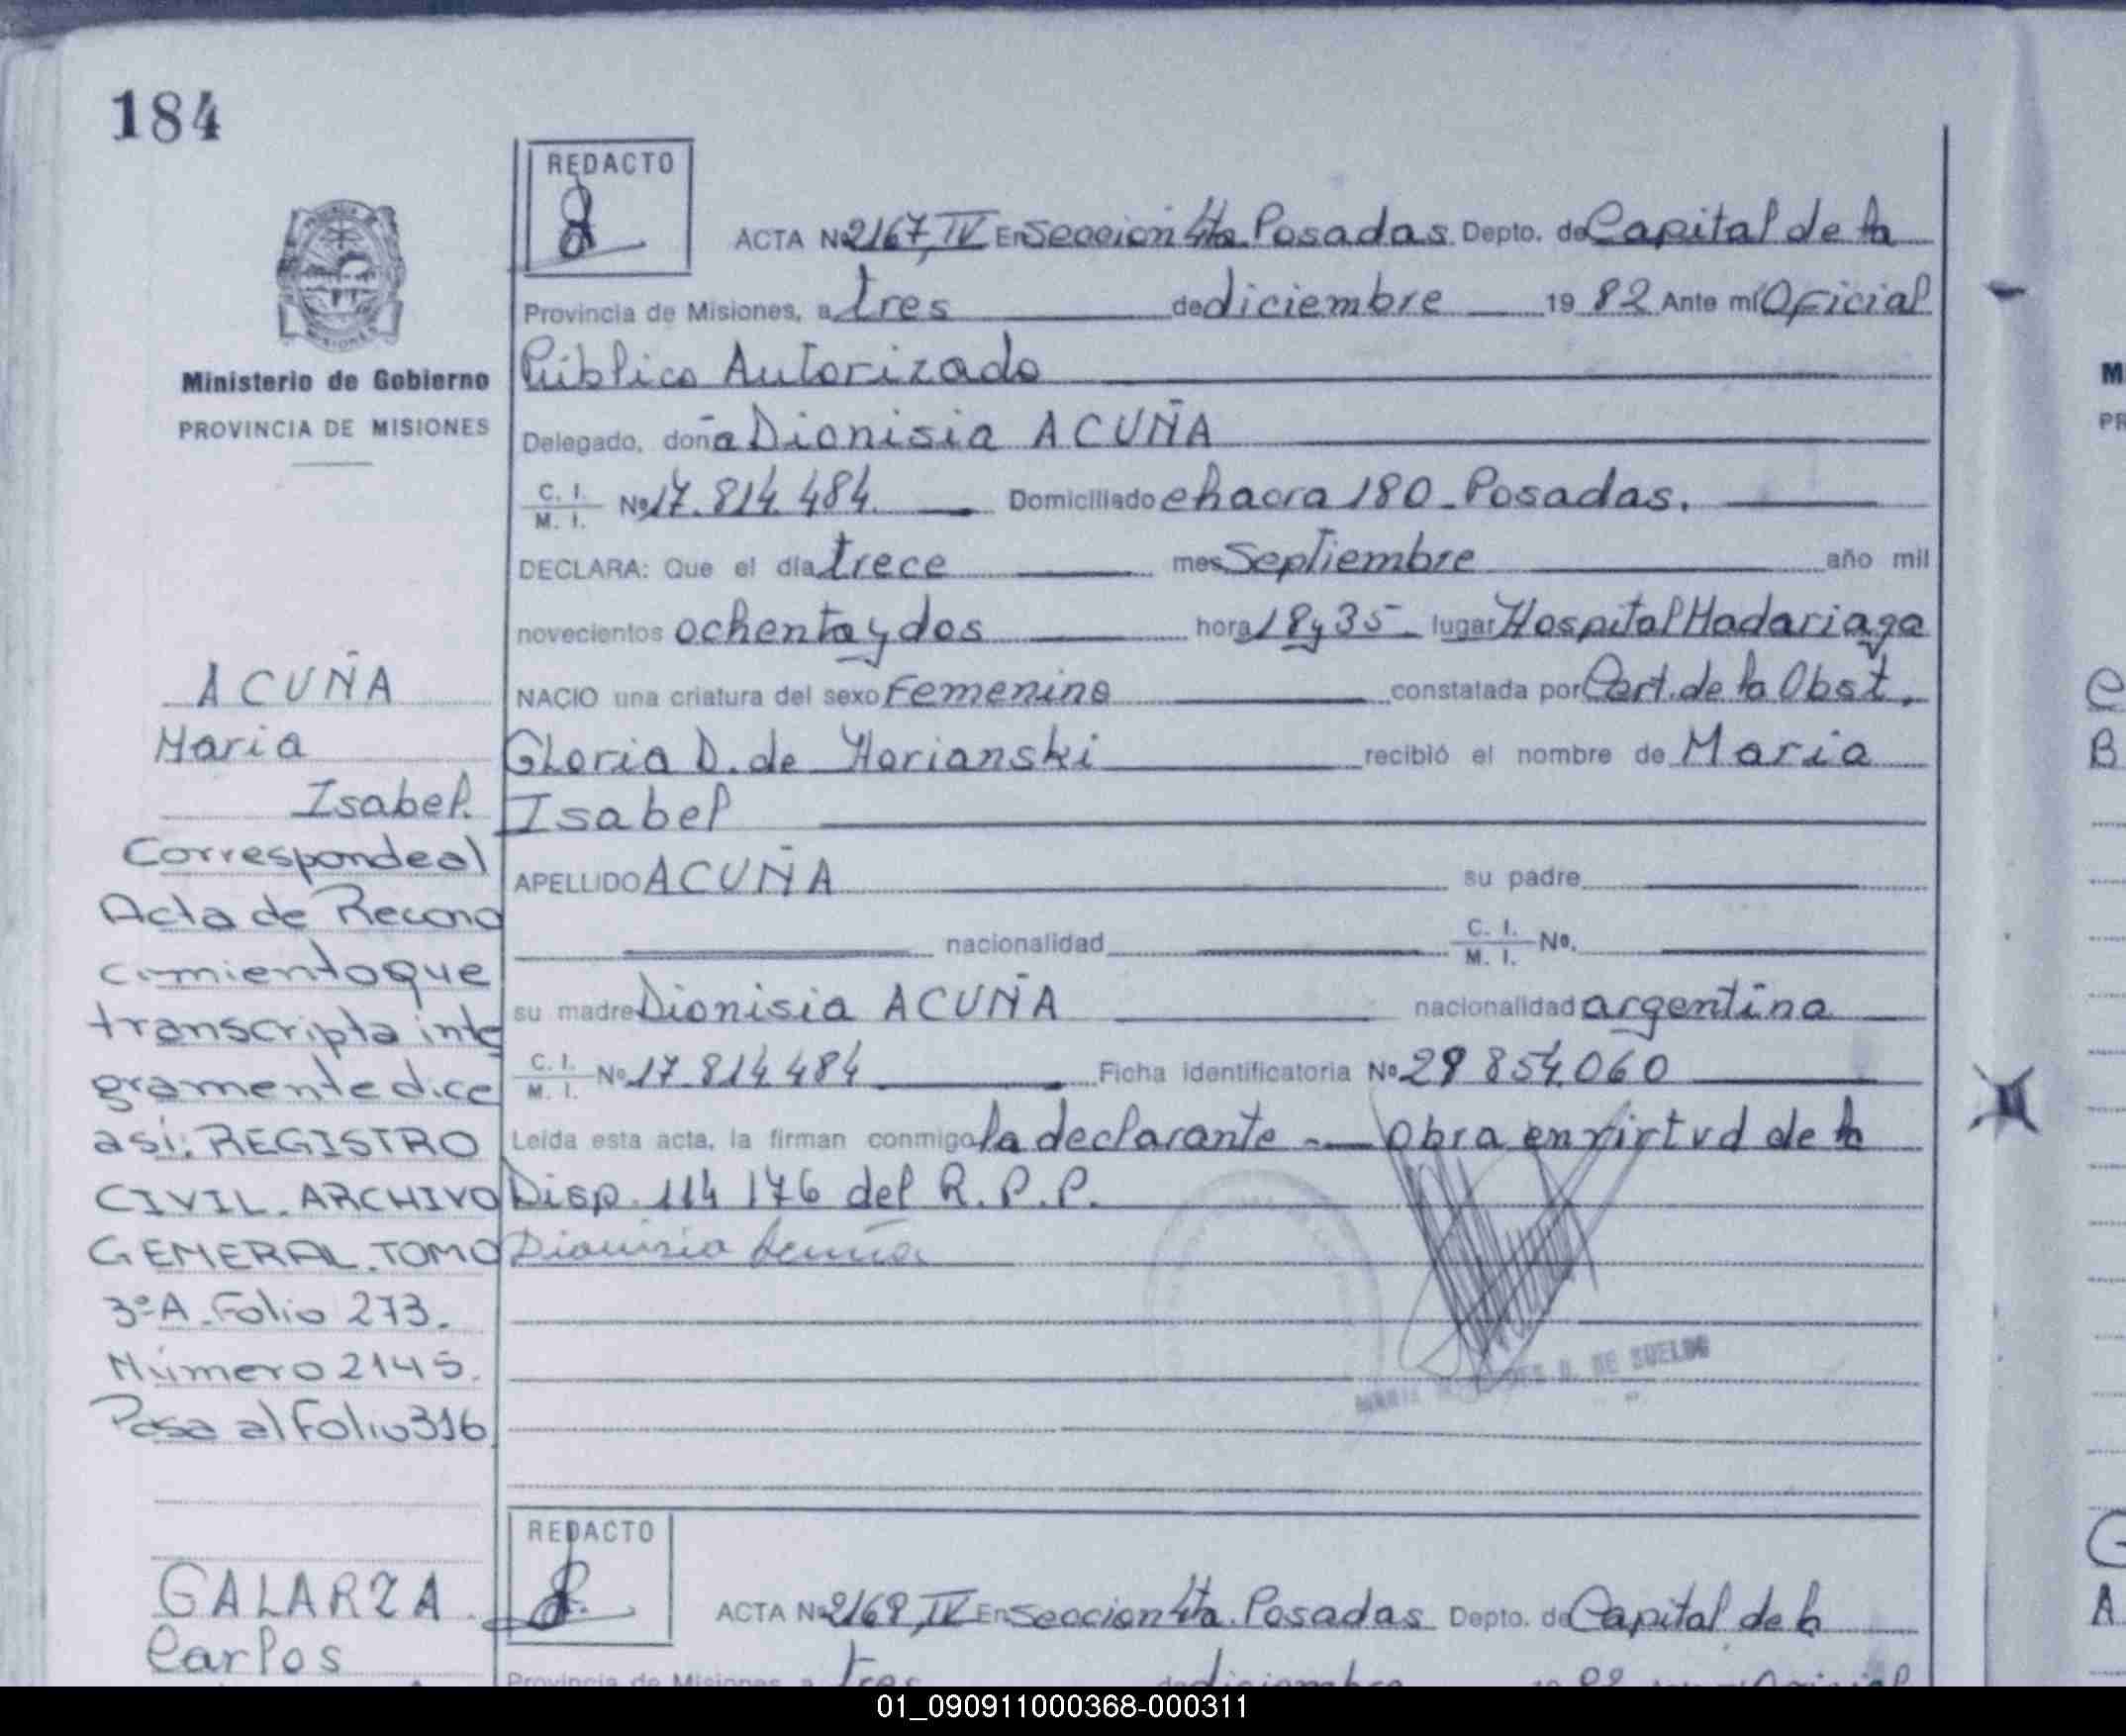 184
REDACTO
ACTA Nº 2167, IV En Seccion 4ta Posadas Depto. de Capital de la
Provincia de Misiones, a tres de diciembre 1982 Ante mí Oficial
Público Autorizado
Delegado, doña Dionisia ACUÑA
C. I. / M. I. Nº 17.814.484. Domiciliado chacra 180 - Posadas.
DECLARA: Que el día trece mes Septiembre año mil
novecientos ochenta y dos hora 18 y 35 - lugar Hospital Madariaga
NACIO una criatura del sexo Femenino constatada por Cert. de la Obst.
Gloria D. de Morianski recibió el nombre de Maria
Isabel
APELLIDO ACUÑA su padre
nacionalidad C. I. / M. I. No.
su madre Dionisia ACUÑA nacionalidad argentina
C. I. / M. I. Nº 17.814.484 Ficha identificatoria Nº 29.854.060
Leída esta acta, la firman conmigo la declarante - Obra en virtud de la
Disp. 114 176 del R.P.P.
Dionisia Acuña
DE SUELDO
Ministerio de Gobierno
PROVINCIA DE MISIONES
ACUÑA
Maria
Isabel.
Corresponde al
Acta de Recono
cimiento que
transcripta inte
gramente dice
así: REGISTRO
CIVIL. ARCHIVO
GENERAL. TOMO
3º A. Folio 273.
Número 2145.
Pasa al Folio 316
REDACTO
ACTA Nº 2168, IV En Seccion 4ta. Posadas Depto. de Capital de la
Provincia de Misiones, a tres de diciembre 1982 Ante mí Oficial
GALARZA
Carlos
M
PR
C
B
G
A
01_090911000368-000311